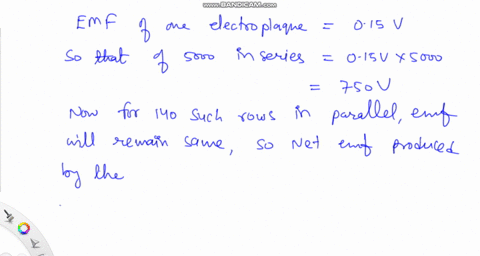 WWW.BANDICAM.COM
EMF of one electroplaque = 0.15 V
So that of 5000 in series = 0.15V × 5000
= 750 V
Now for 140 such rows in parallel, emf
will remain same, so Net emf produced
by the